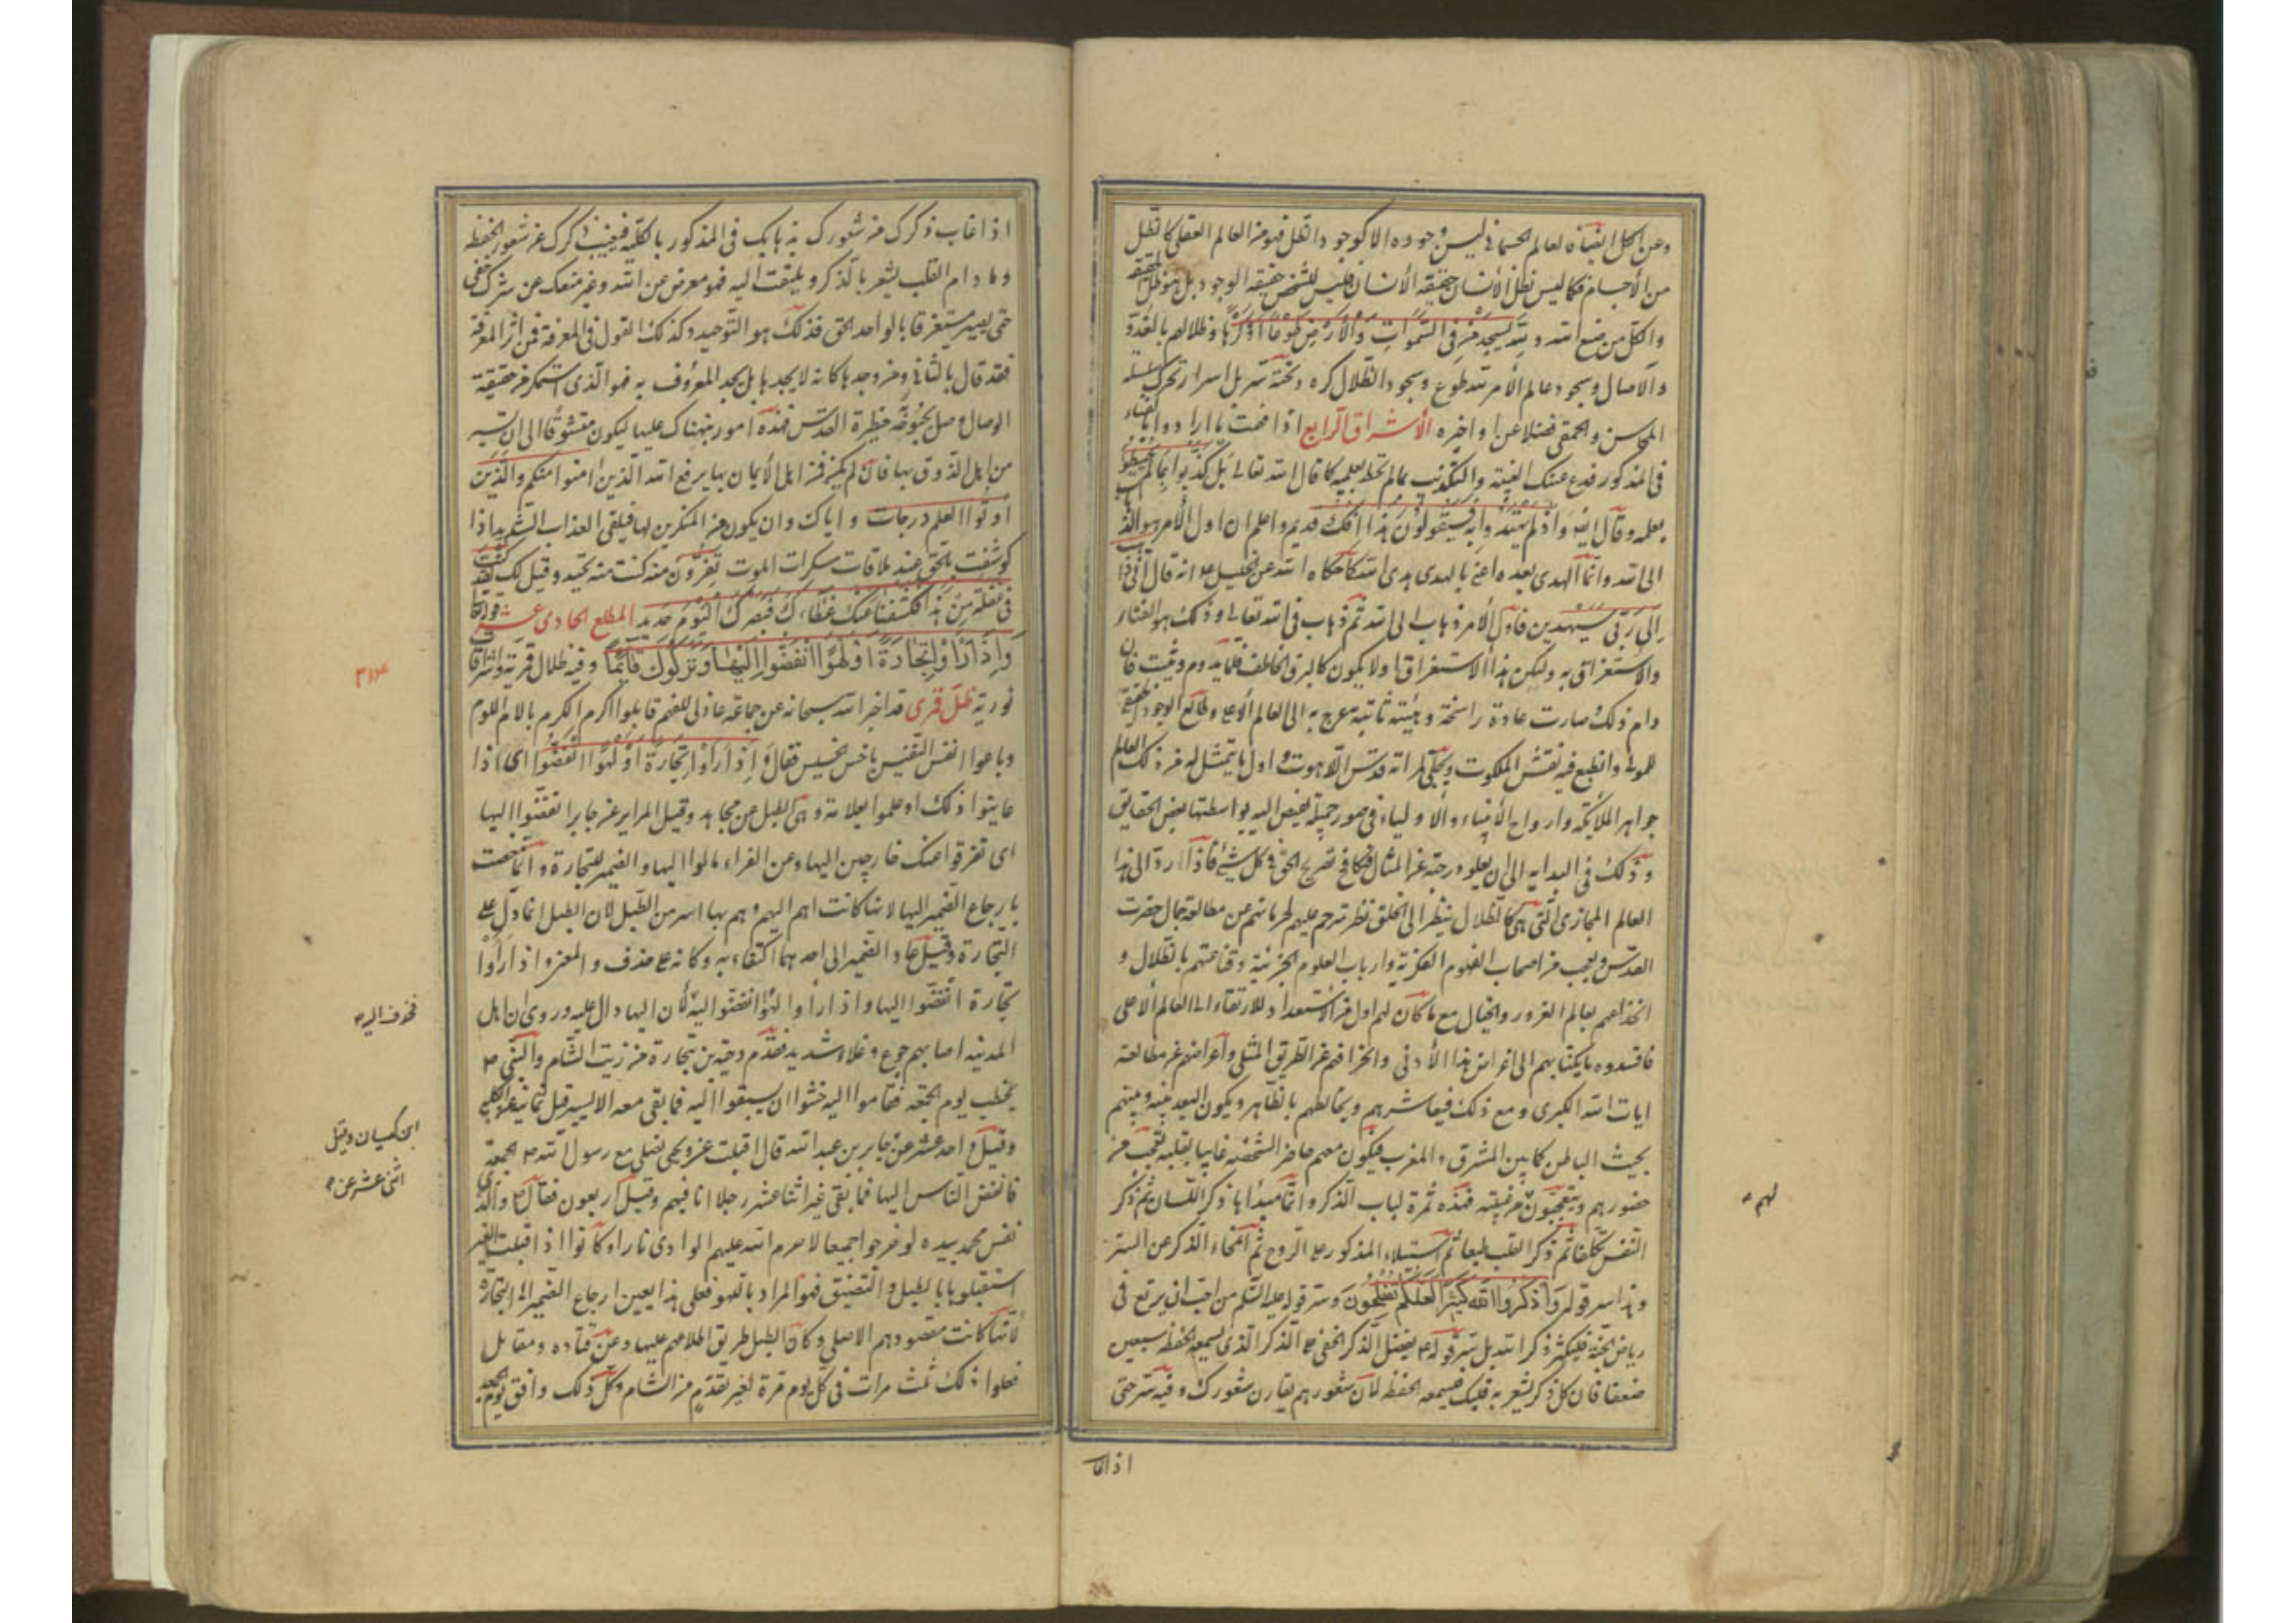 من الأجسام فكما ليس لظل الأنسان حقيقة الأنسان فليس للشخص حقيقة الوجود بل هو ظل لحقيقته
والكل من صنع الله ولله يسجد من في السموات والأرض طوعا او كرها وظلالهم بالغدو
والآصال وسجود عالم الأمر لله طوع وسجود الظلال كره وتحته سر بل اسرار تحرك سلسلة
المجانين والحمقى فضلا عن اواخره الأشراق الرابع
في المذكور فدع عنك الغيبة والتكذيب بما لم تحط بعلمه كما قال الله تعالى بل كذبوا بما لم يحيطوا
بعلمه وقال ايضا واذ لم يهتدوا به فسيقولون هذا افك قديم واعلم ان اول الأمر هو الذهاب
الى الله وانما الهدى بعده اعني بالهدى هدى الله كما حكاه الله عن الخليل ع انه قال اني ذاهب
الى ربي سيهدين فاول الأمر ذهاب الى الله ثم ذهاب في الله تعالى وذلك هو الفناء
والاستغراق به وليكن هذا الاستغراق اولا يكون كالبرق الخاطف قلما يدوم ويثبت فان
دام ذلك وصارت عادة راسخة وهيئة ثابتة عرج به الى العالم الأعلى وطالع الوجود الحقيقي
وانطبع فيه نقش الملكوت وتجلى لمراته قدس اللاهوت و اول ما يتمثل له من ذلك العالم
جواهر الملائكة وارواح الأنبياء والاولياء في صور جميلة يفيض اليه بواسطتها بعض الحقايق
وذلك في البداية الى ان يعلو درجته عن المثال فيكافح بصريح الحق في كل شيء فاذا رد الى هذا
العالم المجازي التي هي كالظلال ينظر الى الخلق نظر مترحم عليهم لحرمانهم عن مطالعة جمال حضرت
القدس ويعجب من اصحاب العلوم الفكرية وارباب العلوم الجزئية وقناعتهم بالظلال و
انخداعهم بعالم الغرور والخيال مع ما كان لهم اول من الاستعداد للارتقاء الى العالم الأعلى
فافسدوه باكبابهم الى اغراض هذا الأدنى وانحرافهم عن الطريق المثلى واعراضهم عن مطالعة
ايات الله الكبرى ومع ذلك فيعاشرهم ويخالطهم بالظاهر ويكون البعد بينه وبينهم
بحيث الباطن كما بين المشرق والمغرب فيكون معهم حاضرا بشخصه غايبا بقلبه تعجب من
حضورهم ويتعجبون من غيبته فهذه ثمرة لباب الذكر وانما مبداها ذكر اللسان ثم ذكر
النفس تكلفا ثم ذكر القلب طبعا ثم استيلاء المذكور على الروح ثم انمحاء الذكر عن السر
وهذا سر قوله واذكروا الله كثيرا لعلكم تفلحون وسر قوله عليه السلم من احب ان يرتع في
رياض الجنة فليكثر ذكر الله بل سر قوله ص يفضل الذكر الخفي على الذكر الذي يسمعه الحفظة سبعين
ضعفا فان كل ذكر يشعر به قلبك فيسمعه الحفظة لأن شعورهم يقارن شعورك وفيه سر حتى
لهم
اذا غاب
اذا غاب ذكرك من شعورك بذهابك في المذكور بالكلية فيغيب ذكرك عن شعور الحفظة
وما دام القلب يشعر بالذكر ويلتفت اليه فهو معرض عن الله وغير منفك عن شرك خفي
حتى يصير مستغرقا بالواحد الحق فذلك هو التوحيد وكذلك القول في المعرفة فمن اثر المعرفة
فقد قال بالثاني ومن وجدها كانه لا يجدها بل يجد المعروف به فهو الذي استمكن من حقيقة
الوصال وحل بحبوحة حظيرة القدس فهذه امور نبهناك عليها ليكون متشوقا الى ان تسير
من اهل الذوق بها فان لم يكن فمن اهل الأيمان بها يرفع الله الذين امنوا منكم والذين
اوتوا العلم درجات واياك وان يكون من المنكرين لها فيلقى العذاب الشديد اذا
كوشفت بالحق عند ملاقات سكرات الموت تفرون منه كنت منه تحيد وقيل لك لقد كنت
في غفلة من هذا فكشفنا عنك غطاءك فبصرك اليوم حديد المطلع الحادي عشر قوله تعالى
واذا راوا تجارة او لهوا انفضوا اليها وتركوك قائما وفيه ظلال قمرية واشراقات
نورية ظل قمري قد اخبر الله سبحانه عن جماعة قابلوا اكرم الكرم بالام اللوم
وباعوا انفس النفيس باخس خسيس فقال واذا راوا تجارة او لهوا انفضوا اى اذا
عاينوا ذلك او علموا بعلامة وهي الطبل عن مجاهد وقيل المزامير عن جابر انفضوا اليها
اى تفرقوا عنك خارجين اليها وعن الفراء مالوا اليها والضمير للتجارة وانما خصت
بارجاع الضمير اليها لانها كانت اهم اليهم وهم بها اسر من الطبل لان الطبل انما دل على
التجارة وقيل عاد الضمير الى احدهما اكتفاء به وكانه على حذف والمعنى واذا راوا
تجارة انفضوا اليها واذا راوا لهوا انفضوا اليه لأن اليها دال عليه وروى ان اهل
المدينة اصابهم جوع وغلاء شديد فقدم دحية بن بتجارة من زيت الشام والنبي ص
يخطب يوم الجمعة فقاموا اليه خشوا ان يسبقوا اليه فما بقى معه الا يسير قيل ثمانية عن الكلبي
وقيل واحد عشر عن جابر بن عبد الله قال اقبلت عير ونحن نصلي مع رسول الله ص الجمعة
فانفض الناس اليها فما بقى غير اثنا عشر رجلا انا فيهم وقيل اربعون فقال ص والذي
نفس محمد بيده لو خرجوا جميعا لاضرم الله عليهم الوادي نارا وكانوا اذا اقبلت العير
استقبلوها بالطبل والتصفيق فهو المراد باللهو فعلى هذا يعين ارجاع الضمير الى التجارة
لأنها كانت مقصودهم الاصلي وكان الطبل طريق اطلاعهم عليها وعن قتاده ومقاتل
فعلوا ذلك ثلث مرات في كل يوم مرة لعير تقدم من الشام وكل ذلك وافق يوم الجمعة
ابن كيسان وقيل